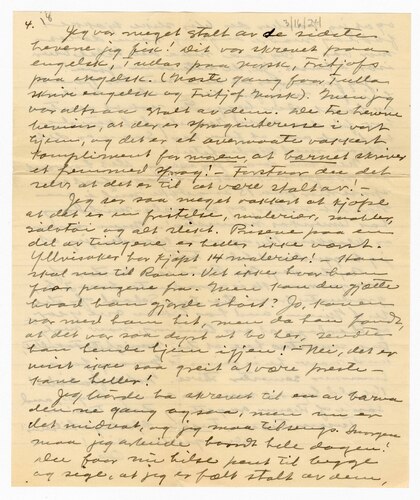 4. 18
3/16/24
Jeg var meget stolt av de sidste
brevene jeg fik! Dit var skrevet paa
engelsk, Tullas paa norsk, Fritjofs
paa engelsk. (Næste gang faar Tulla
skrive engelsk og Fritjof norsk). Men jeg
var altsaa stolt av dem. De tre brevene
beviser, at der er sproginteresse i vort
hjem, og det er et overmaate vakkert
kompliment for moren, at barnet skriver
et fremmed sprog! - Forstaar du det
selv at det er til at være stolt av! -
Jeg ser saa meget vakkert at kjøpe
at det er en fristelse, malerier, smaating,
og alt slikt. Prisene paa en
del av tingene er heller ikke værst.
Ylvisaker har kjøpt 14 malerier! Han
skal nu til Rom. Vet ikke hvor han
faar pengene fra. Men kan du gjætte
hvad han gjorde først? Jo, konen
var med ham hit, men da han fandt,
at det var saa dyrt at bo her, sendte
han hende hjem igjen! - Nei, det er
nok ikke saa greit at være preste-
kone heller!
Jeg burde ha skrevet til en av barna
denne gang ogsaa, men nu er
det midnat, og jeg maa tilsengs. Imorgen
maa jeg arbeide haardt hele dagen!
Du faar nu hilse pent til begge
og sige, at jeg er fælt stolt av dem,